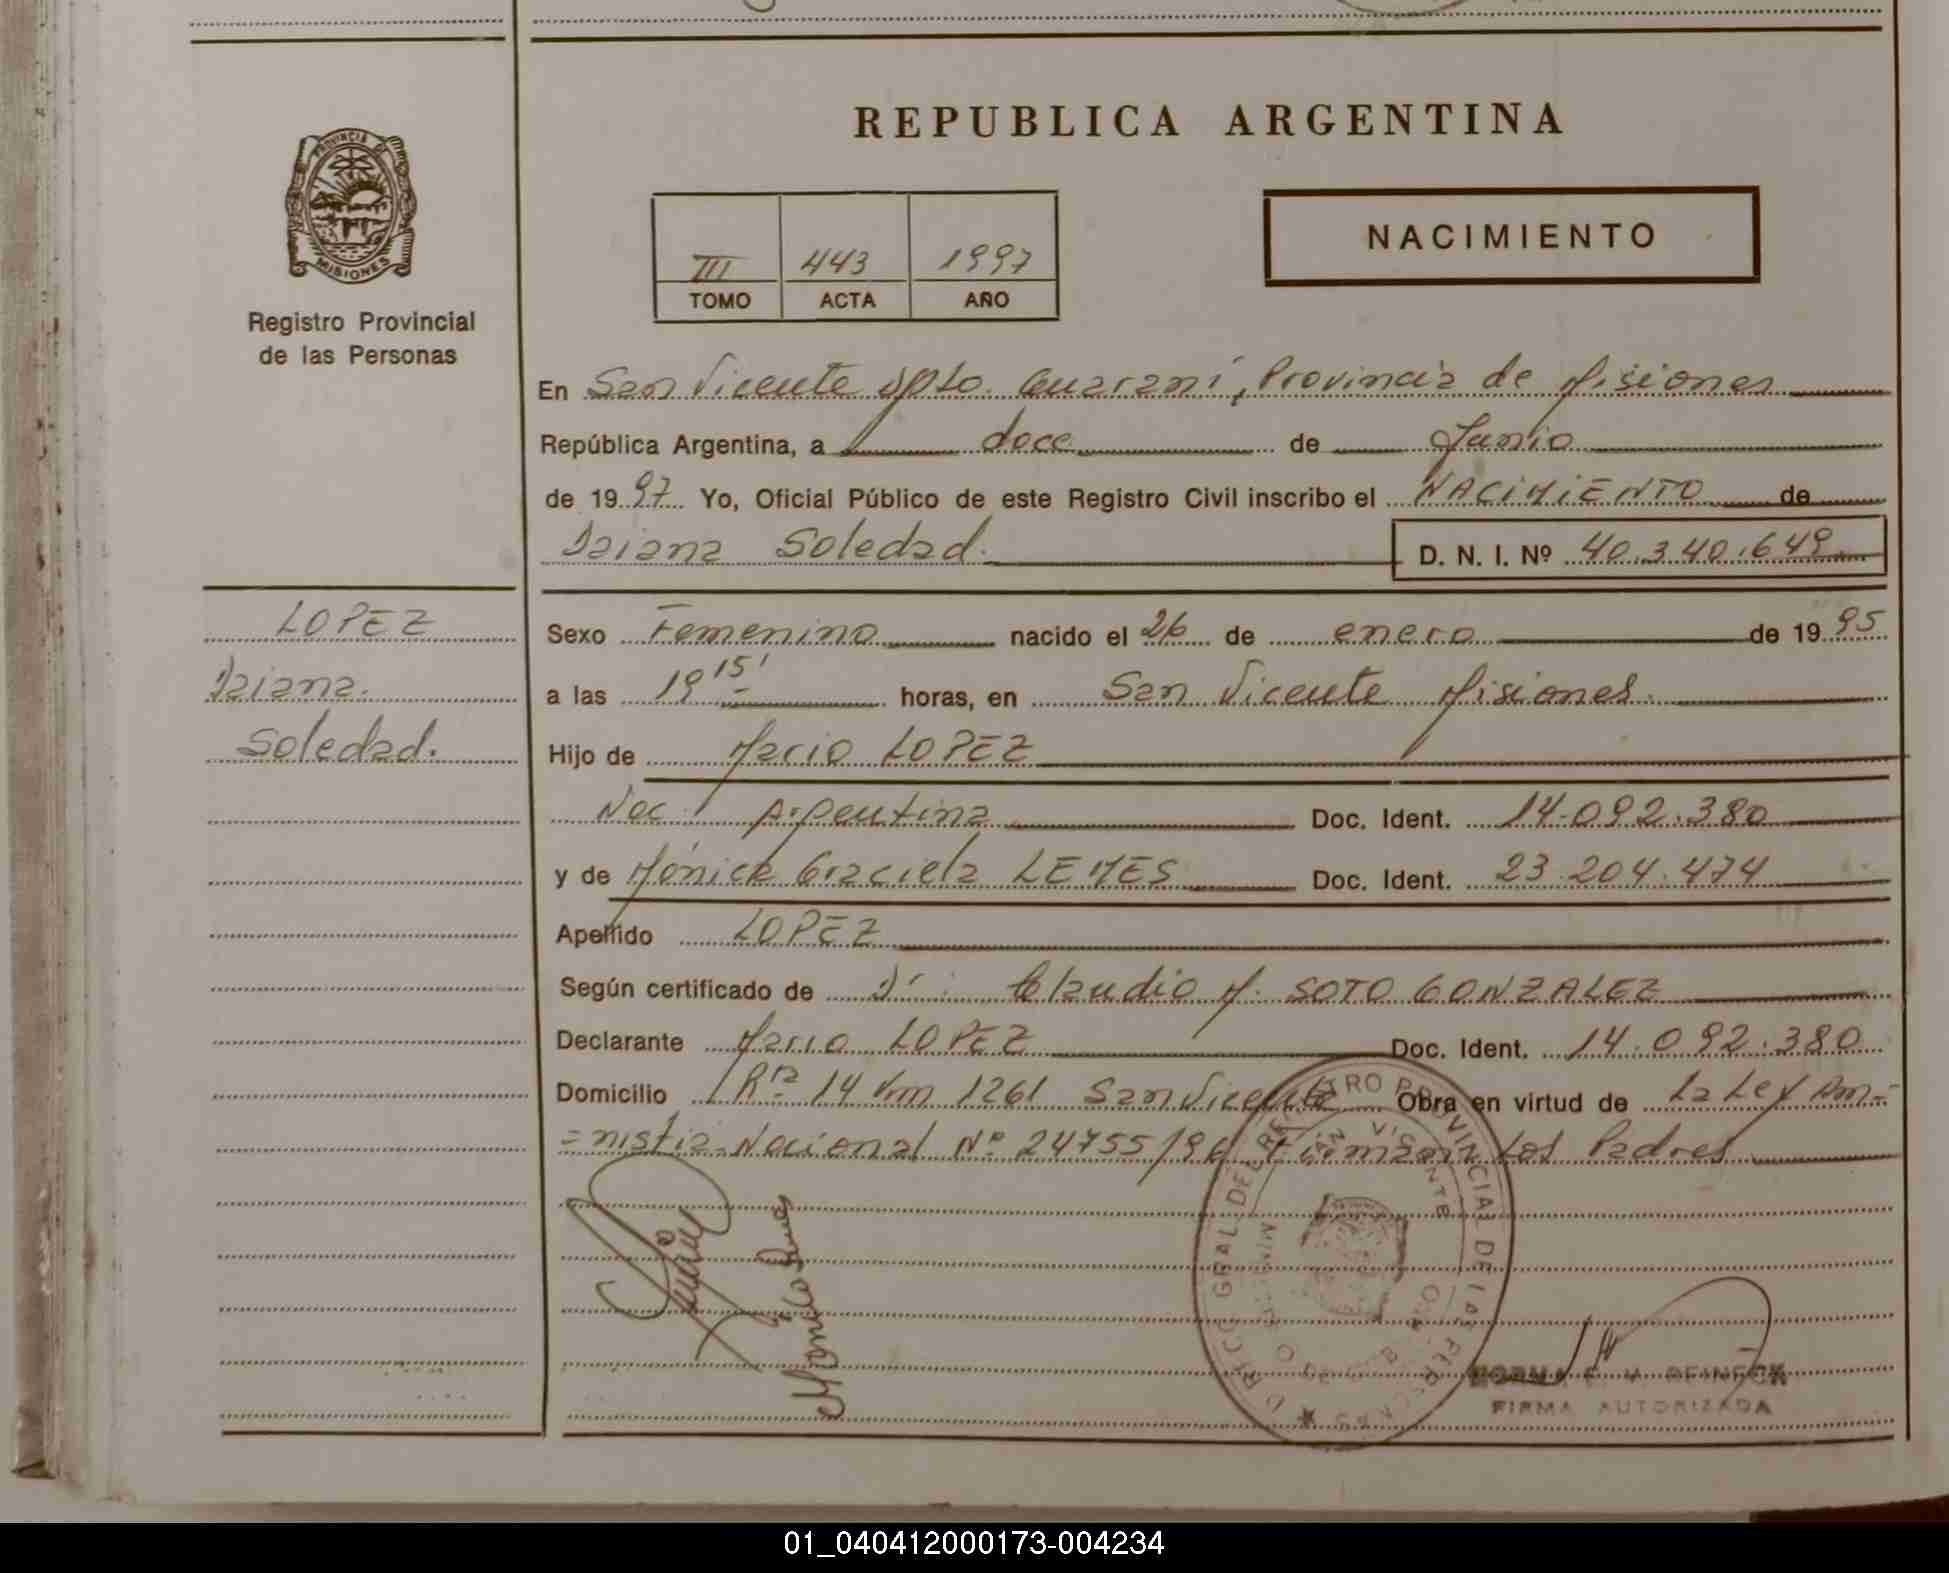 REPUBLICA ARGENTINA
PROVINCIA DE
MISIONES
Registro Provincial
de las Personas
III 443 1997
TOMO ACTA AÑO
NACIMIENTO
En San Vicente Dpto. Guaraní, Provincia de Misiones
República Argentina, a doce de Junio
de 1997 Yo, Oficial Público de este Registro Civil inscribo el NACIMIENTO de
Daiana Soledad.
D. N. I. Nº 40.340.649
LOPEZ
Daiana
Soledad.
Sexo Femenino nacido el 26 de enero de 1995
a las 19 15' horas, en San Vicente Misiones.
Hijo de Mario LOPEZ
Nac. Argentina Doc. Ident. 14.092.380
y de Mónica Graciela LEMES Doc. Ident. 23.204.474
Apellido LOPEZ
Según certificado de Dr. Claudio M. SOTO GONZALEZ
Declarante Mario LOPEZ Doc. Ident. 14.092.380
Domicilio Rta 14 Km 1261 San Vicente Obra en virtud de la Ley Am-
=nistia Nacional Nº 24755/96 Firman Los Padres
NORMA E. M. REINECK
FIRMA AUTORIZADA
01_040412000173-004234